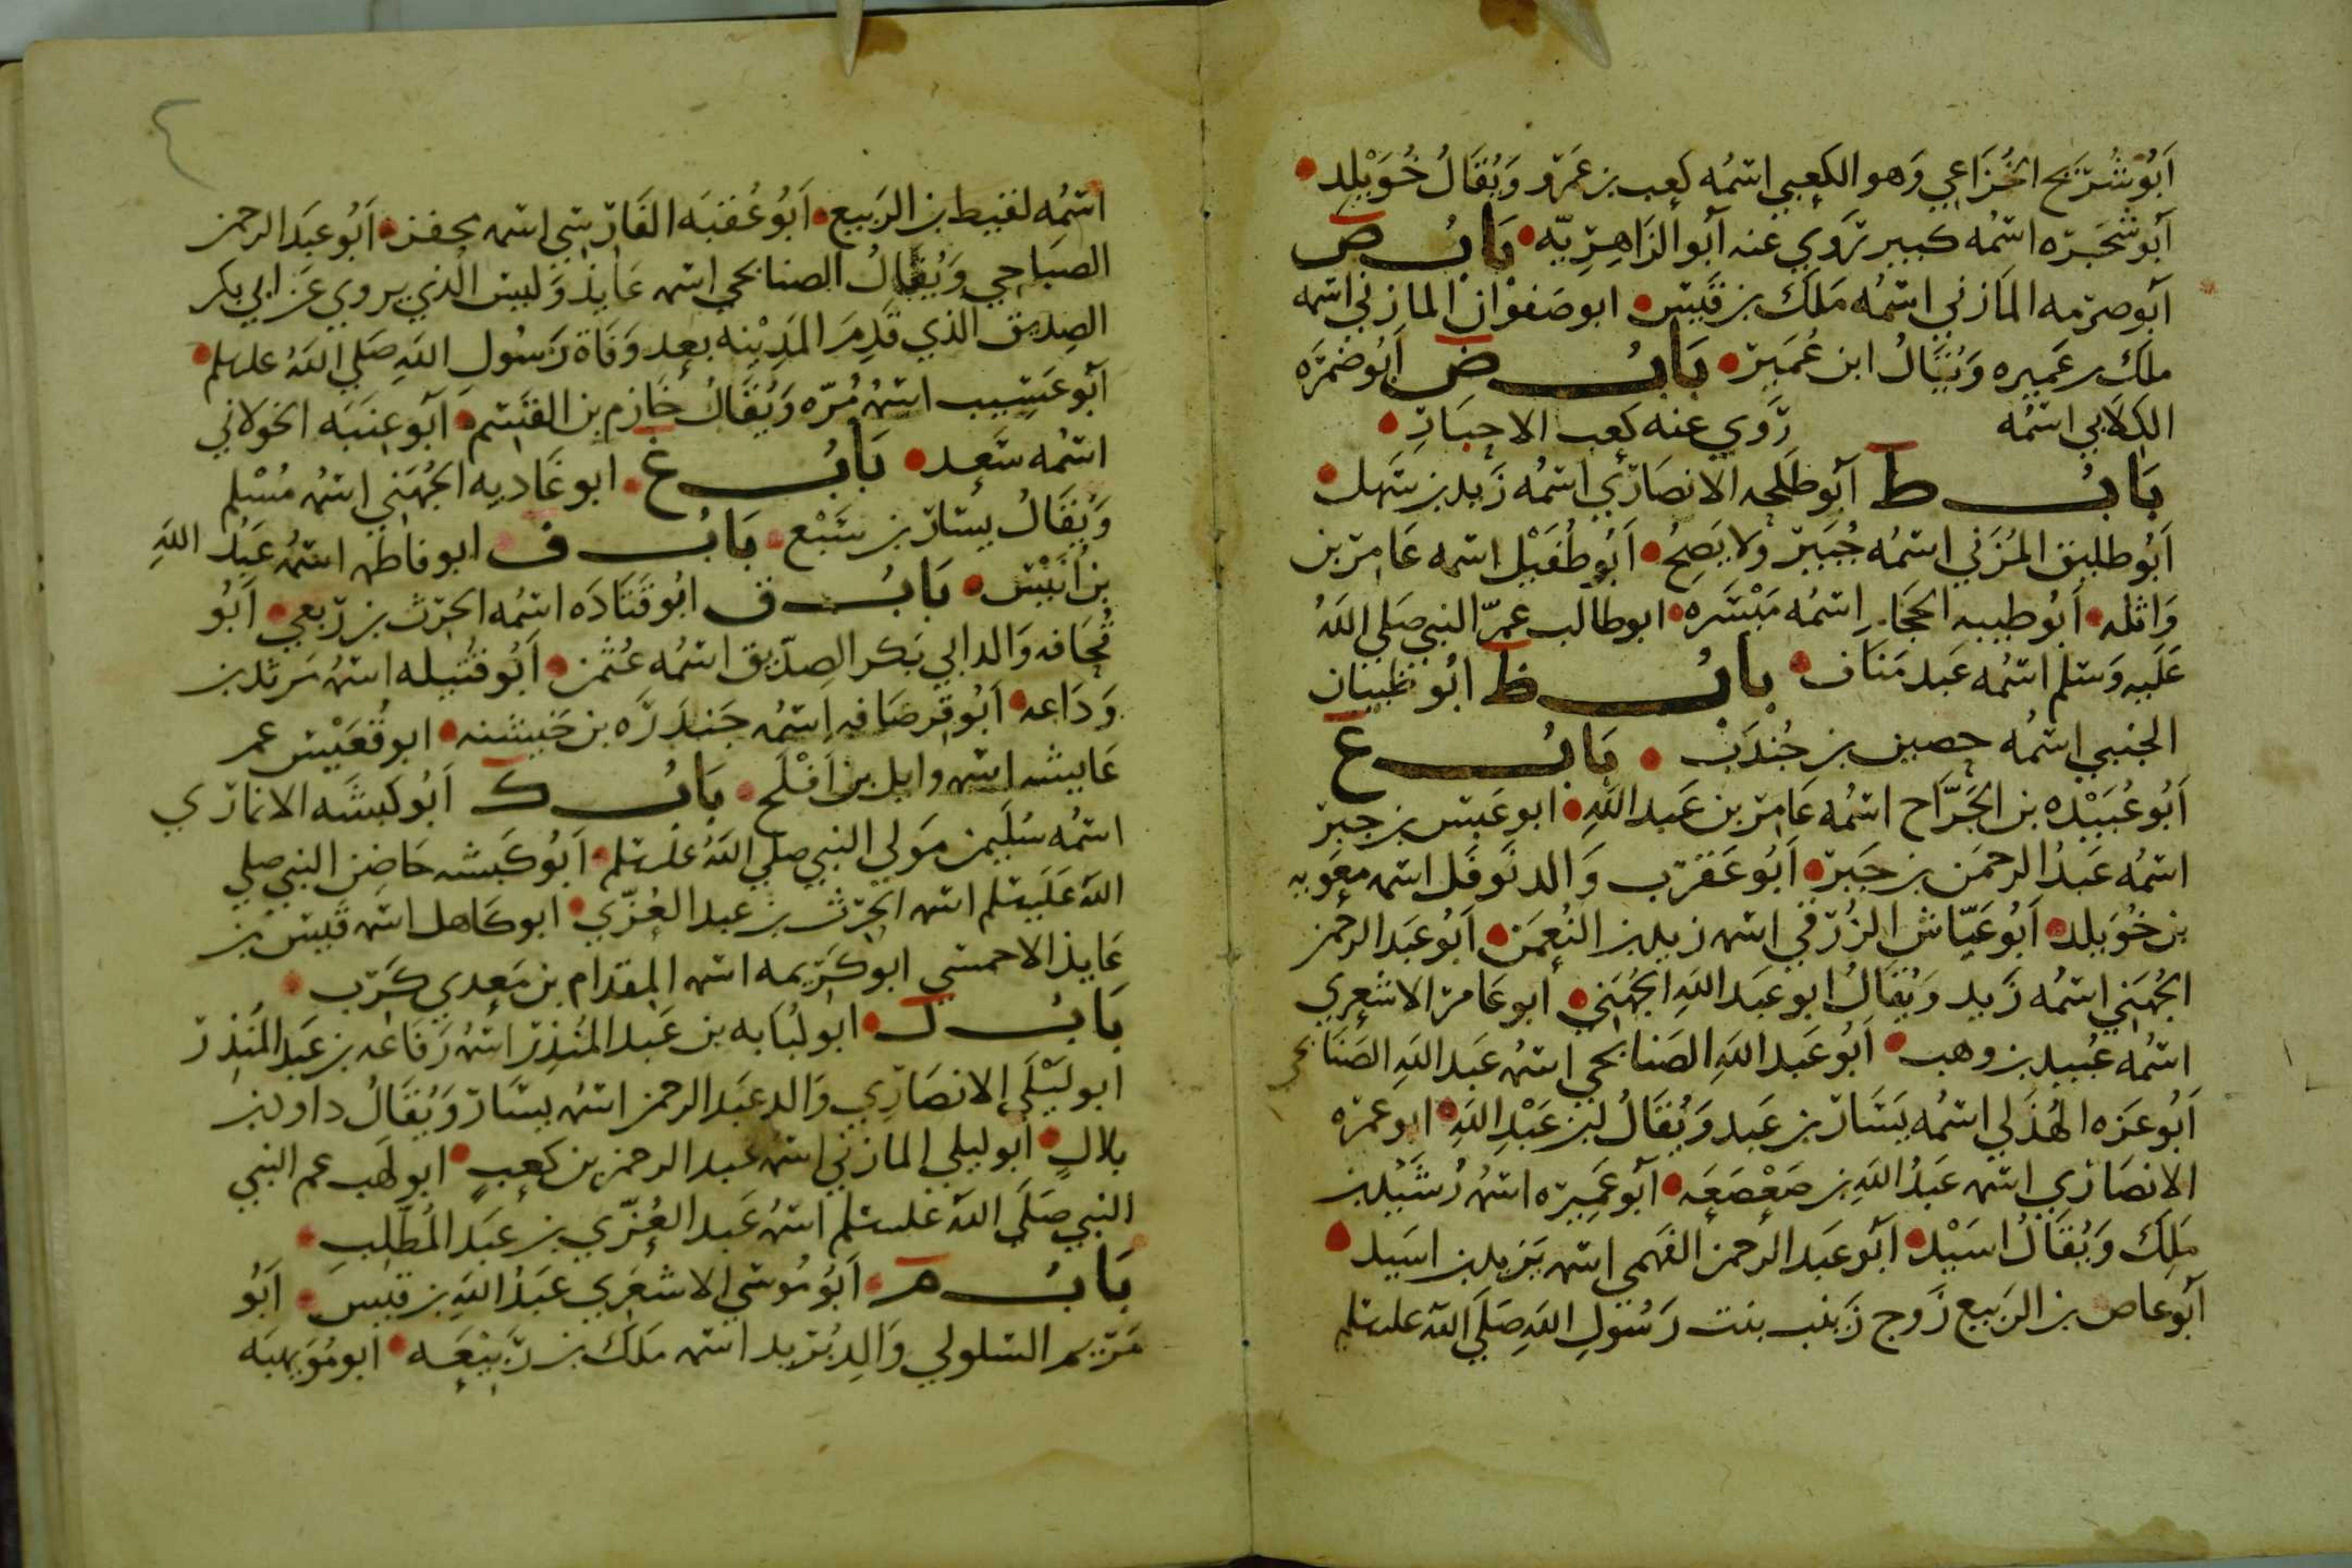 أبو شريح الخزاعي وهو الكعبي اسمه كعب بن عمرو ويقال خويلد
أبو شجره اسمه كبير تروي عنه أبو الزاهريه باب ص
أبو صرمه المازني اسمه ملك بن قيس ابو صفوان المازني اسمه
ملك بن عميره ويقال ابن عمير باب ض أبو ضمره
الكلابي اسمه روي عنه كعب الاحبار
باب ط أبو طلحه الانصاري اسمه زيد بن سهل
أبو طليق المزني اسمه جبير ولا يصح أبو طفيل اسمه عامر بن
واثله أبو طيبه الحجام اسمه ميسره ابو طالب عم النبي صلى الله
عليه وسلم اسمه عبد مناف باب ظ ابو ظبيان
الجنبي اسمه حصين بن جندب باب ع
أبو عبيده بن الجراح اسمه عامر بن عبد الله ابو عبس بن جبر
اسمه عبد الرحمن بن جبر أبو عقرب والد نوفل اسمه معويه
بن خويلد أبو عياش الزرقي اسمه زيد بن النعمن أبو عبد الرحمن
الجهني اسمه زيد ويقال ابو عبد الله الجهني أبو عامر الاشعري
اسمه عبيد بن وهب أبو عبد الله الصنابحي اسمه عبد الله الصنابحي
أبو عزه الهذلي اسمه يسار بن عبد ويقال بن عبد الله ابو عمره
الانصاري اسمه عبد الله بن صعصعه أبو عميره اسمه رشيد بن
ملك ويقال اسيد أبو عبد الرحمن الفهمي اسمه يزيد بن اسيد
أبو عاص بن الربيع زوج زينب بنت رسول الله صلى الله علىسلم
اسمه لقيط بن الربيع أبو عقبه الفارسي اسمه أبو عبد الرحمن
الصباحي ويقال الصنابحي اسمه عايذ وليس الذي يروي عن ابي بكر
الصديق الذي قدم المدينه بعد وفاة رسول الله صلى الله علىسلم
أبو عسيب اسمه مره ويقال خازم بن القسم أبو عنبه الخولاني
اسمه سعد باب غ ابو غاديه الجهني اسمه مسلم
ويقال يسار بن سبع باب ف ابو فاطمه اسمه عبد الله
بن أنيس باب ق ابو قتاده اسمه الحرث بن ربعي أبو
قحافه والد ابي بكر الصديق اسمه عثمن أبو قتيله اسمه مرثد بن
وداعه أبو قرصافه اسمه جندره بن خيشنه ابو قعيس عم
عايشه اسمه وايل بن أفلح باب ك أبو كبشه الانماري
اسمه سليمن مولى النبي صلى الله علىسلم أبو كبشه حاضن النبي صلى
الله علىسلم اسمه الحرث بن عبد العزى ابو كاهل اسمه قيس بن
عايذ الاحمسي ابو كريمه اسمه المقدام بن معدي كرب
باب ل ابو لبابه بن عبد المنذر اسمه رفاعه بن عبد المنذر
ابو ليلى الانصاري والد عبد الرحمن اسمه يسار ويقال داود بن
بلال أبو ليلى المازني اسمه عبد الرحمن بن كعب ابو لهب عم النبي
النبي صلى الله علىسلم اسمه عبد العزى بن عبد المطلب
باب م أبو موسى الاشعري عبد الله بن قيس أبو
مريم السلولي والد بريد اسمه ملك بن ربيعه ابو مويهبه